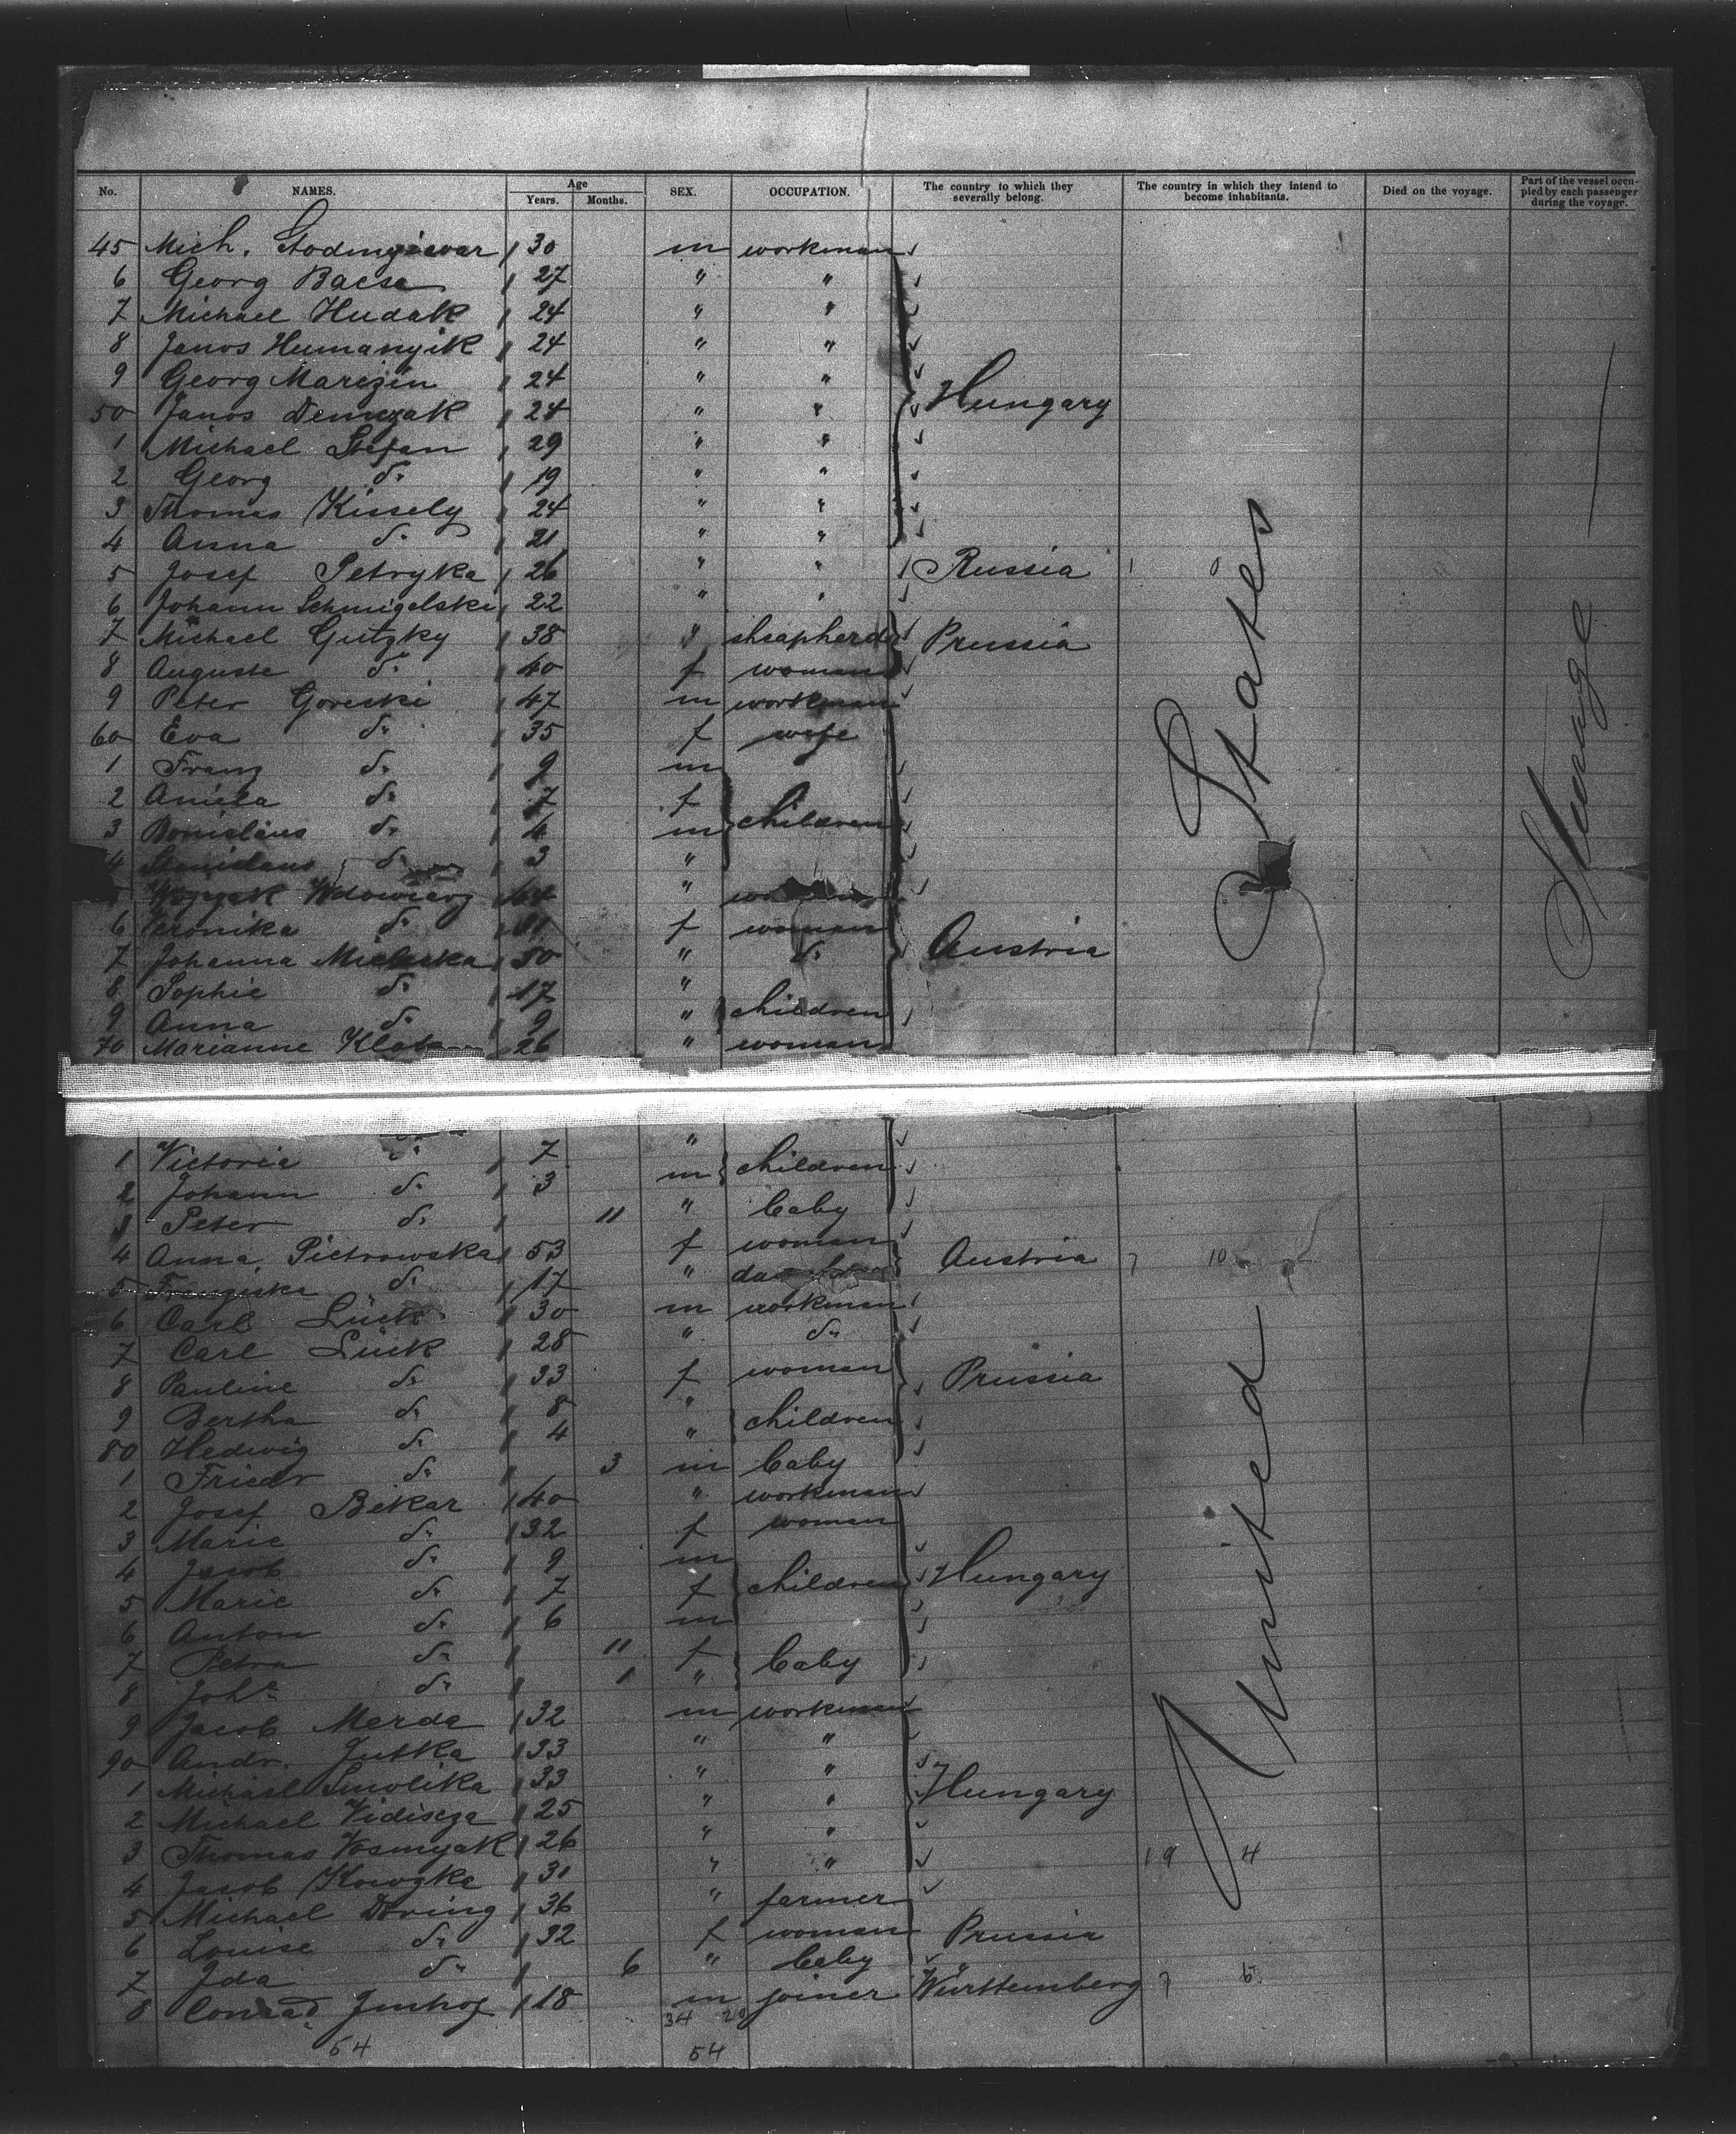 No. NAMES. Age Years. Months. SEX. OCCUPATION. The country to which they severally belong. The country in which they intend to become inhabitants. Died on the voyage. Part of the vessel occupied by each passenger during the voyage.
45 Mich. 30 m workman
6 Georg Bacsa 27 " "
7 Michael Hudak 24 " "
8 Janos Humanyik 24 " "
9 Georg Marizin 24 " " Hungary
50 Janos Demczak 24 " "
1 Michael Stefan 29 " "
2 Georg do 19 " "
3 Thomas Kissely 24 " "
4 Anna do 21 " "
5 Josef Petryka 26 " " Russia 1 0
6 Johann Schmigelski 22 " "
7 Michael Gutzky 38 " sheapherd Prussia
8 Auguste do 40 f woman
9 Peter Goreski 47 m workman
60 Eva do 35 f wife
1 Franz do 9 m
2 Aniela do 7 f children
3 Bonislaus do 4 m
4 Stanislaus do 3 "
Wdowiarz 64 "
6 Veronika do f woman
7 Johanna 50 " do Austria
8 Sophie do 17 "
9 Anna do 9 " children
70 Marianne 26 " woman
1 Victoria do 7 " children
2 Johann do 3 m
3 Peter do 11 " baby
4 Anna Pietrowska 53 f woman Austria 7 10
5 Franziska do 17 "
6 Carl Lück 30 m workman
7 Carl Lück 28 " do
8 Pauline do 33 f woman Prussia
9 Bertha do 8 " children
80 Hedwig do 4 "
1 Friedr do 3 m baby
2 Josef Bekar 40 " workman
3 Marie do 32 f woman
4 Jacob do 9 m children Hungary
5 Marie do 7 f
6 Anton do 6 m
7 Petra do 11 f baby
8 Joh. do 1 "
9 Jacob Merda 32 m workman
90 Andr. Jutka 33 " "
1 Michael Smolika 33 " " Hungary
2 Michael Vidisega 25 " "
3 Thomas Kosmyak 26 " "
4 Jacob 31 " " 19 4
5 Michael Döring 36 " farmer
6 Louise do 32 f woman Prussia
7 Ida do 6 " baby
8 Conrad Imhof 18 m joiner Württemberg 7 5
34 20
54 54
United States
Steerage